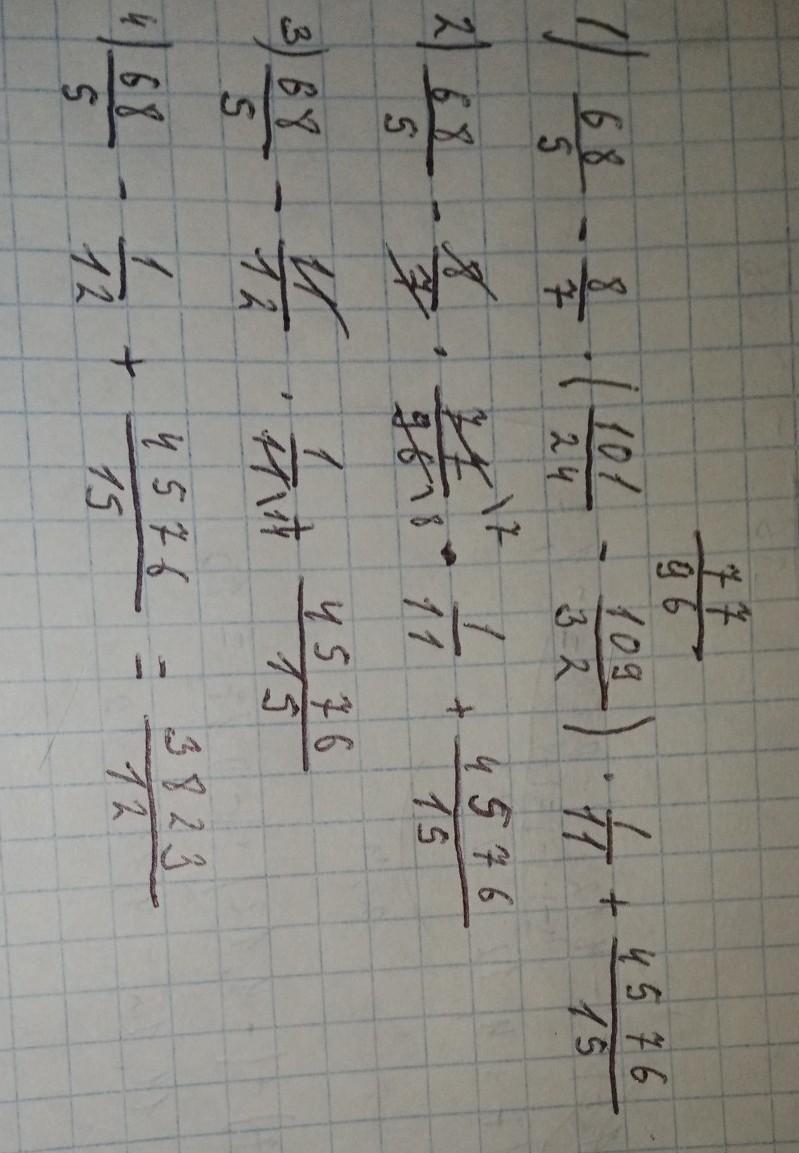 1) 68/5 - 8/7 · (101/24 - 109/32) · 1/11 + 4576/15
77/96
2) 68/5 - 8/7 · 77\7/96\8 · 1/11 + 4576/15
3) 68/5 - 11/12 · 1/11\11 4576/15
4) 68/5 - 1/12 + 4576/15 = 3823/12